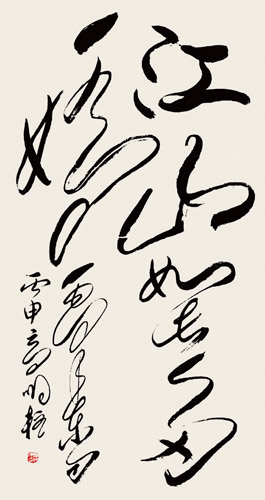 江山如此多
嬌
毛泽东句
丙申